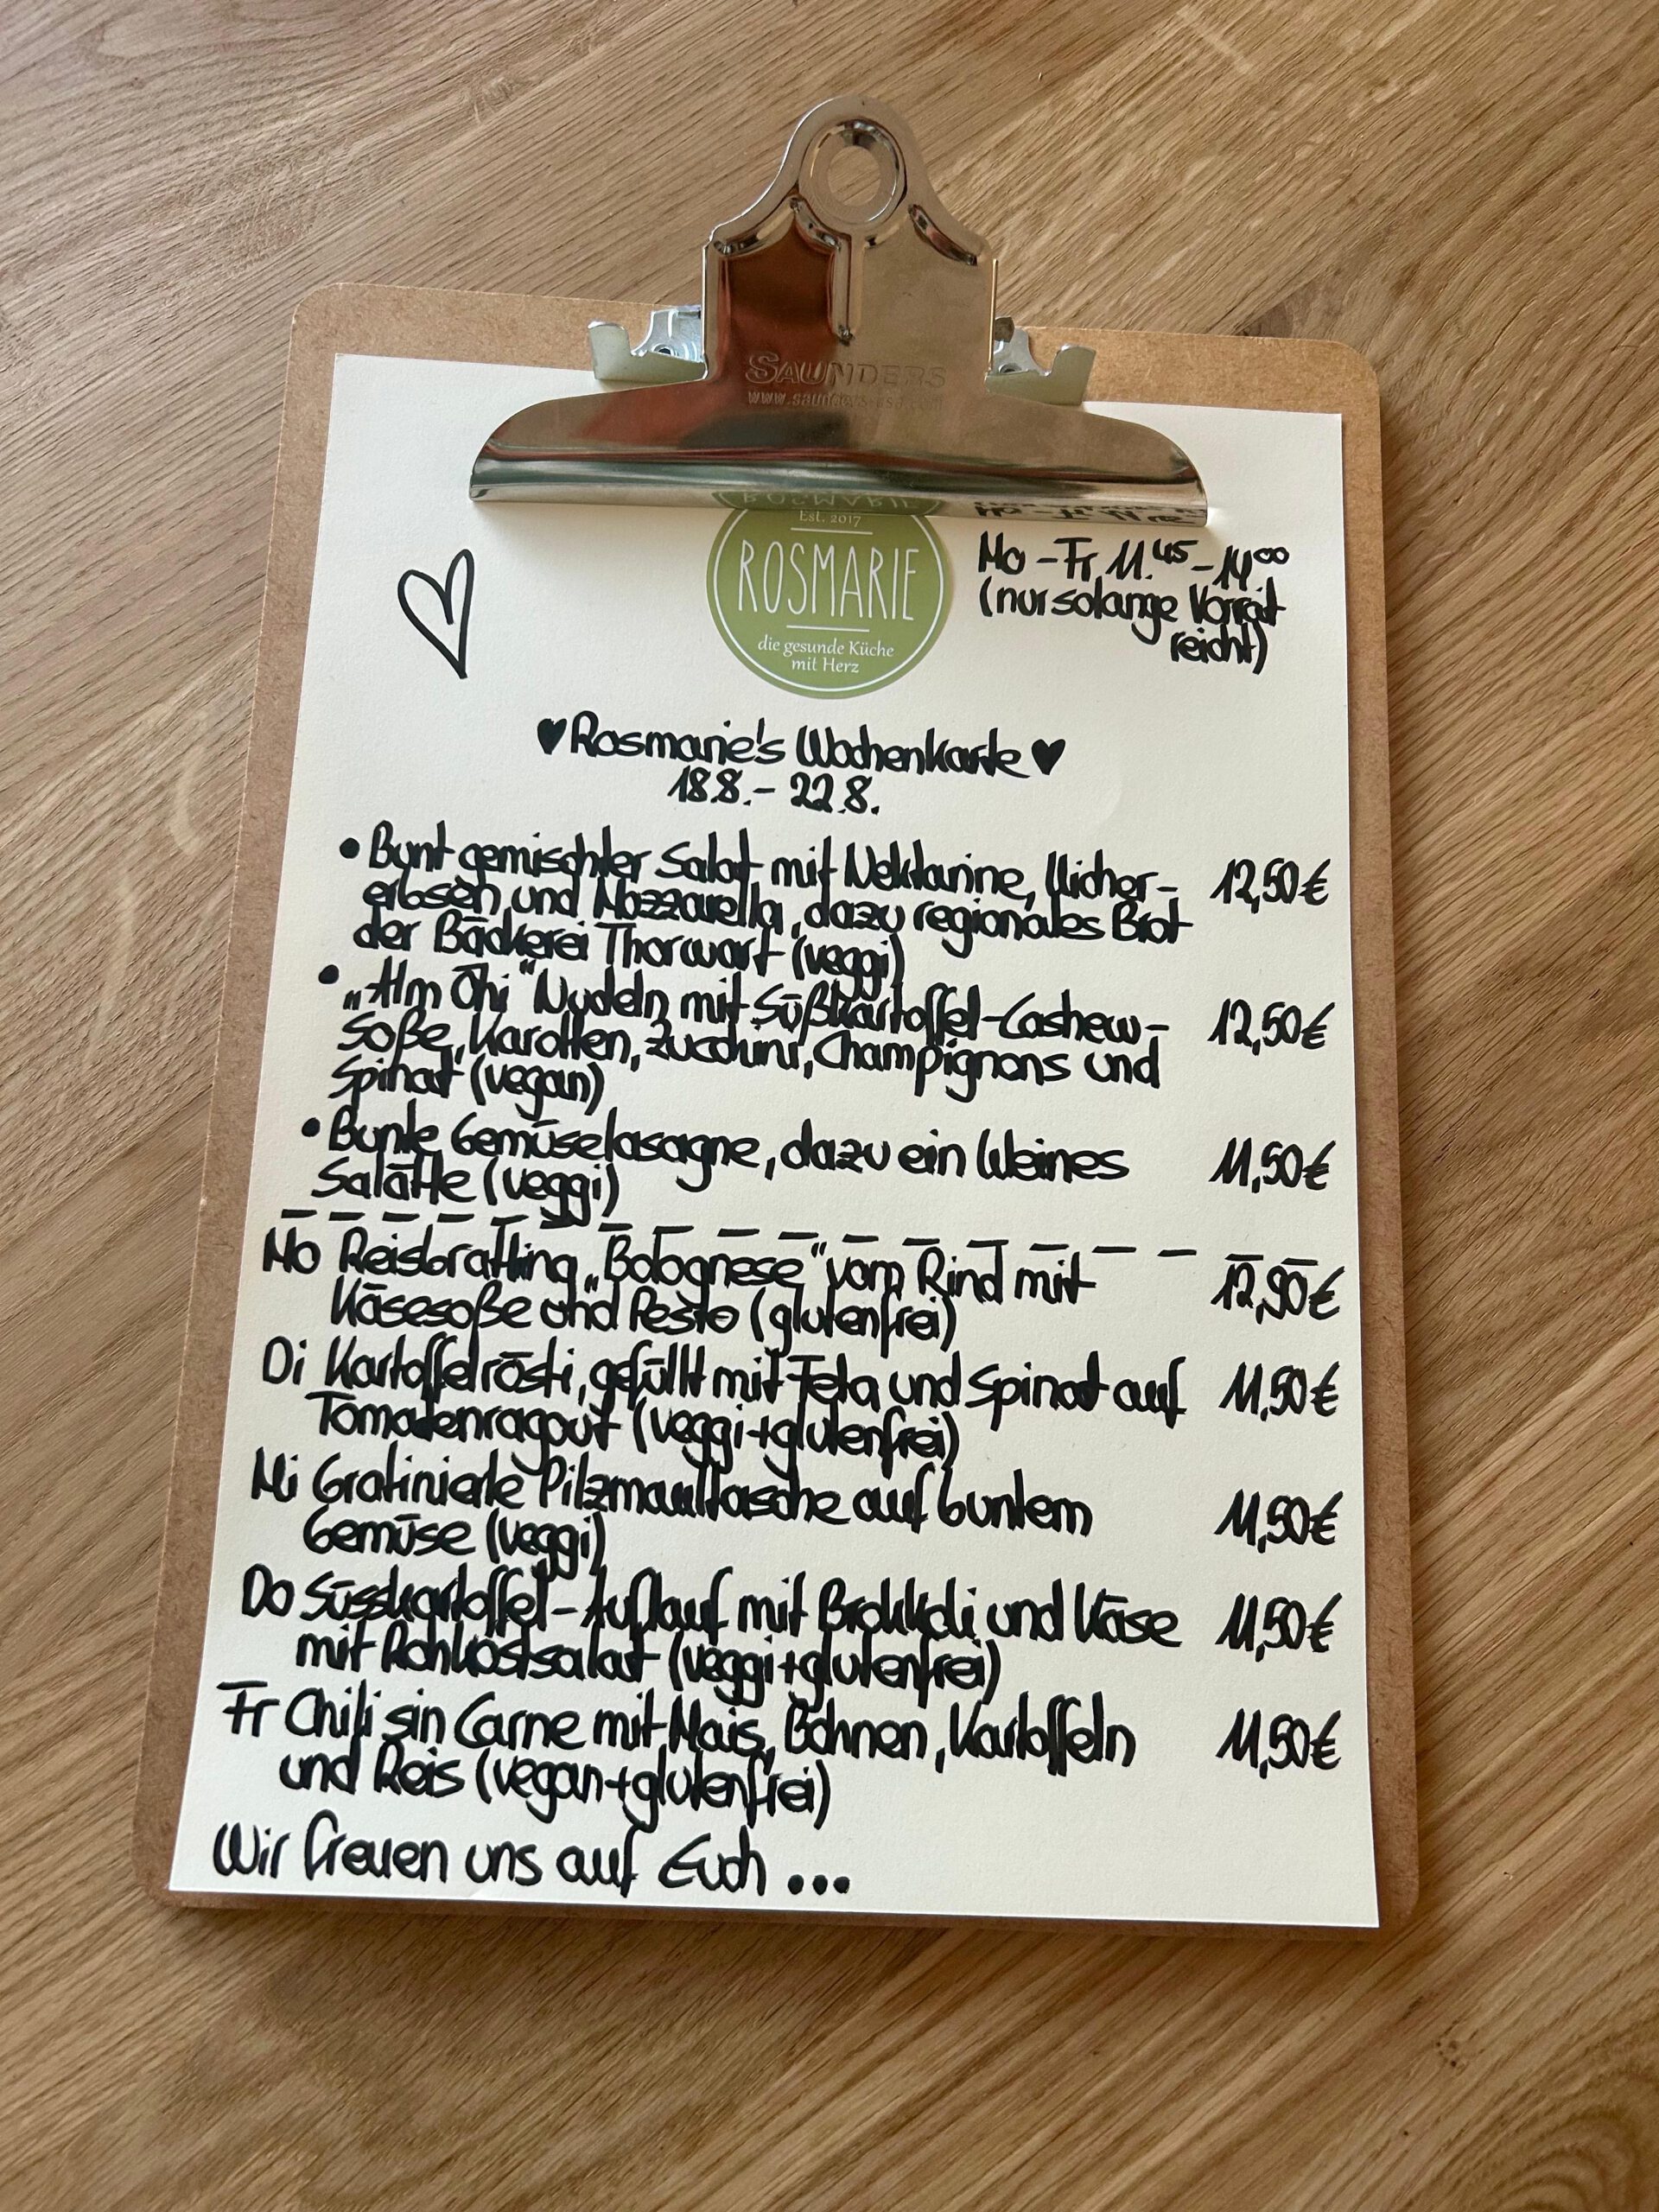 SAUNDERS
Est. 2017
ROSMARIE
die gesunde Küche
mit Herz
Mo - Fr 11.45 - 14.00
(nur solange Vorrat
reicht)
♥ Rosmarie's Wochenkarte ♥
18.8. - 22.8.
• Bunt gemischter Salat mit Nektarine, Kicher- 12,50€
erbsen und Mozzarella, dazu regionales Brot
der Bäckerei Thorwart (veggi)
• „Alm Öhi" Nudeln mit Süßkartoffel-Cashew- 12,50€
Soße, Karotten, Zucchini, Champignons und
Spinat (vegan)
• Bunte Gemüselasagne, dazu ein kleines 11,50€
Salätle (veggi)
Mo Reisbratling „Bolognese" vom Rind mit 12,90€
Käsesoße und Pesto (glutenfrei)
Di Kartoffelrösti, gefüllt mit Feta und Spinat auf 11,50€
Tomatenragout (veggi+glutenfrei)
Mi Gratinierte Pilzmaultasche auf buntem 11,50€
Gemüse (veggi)
Do Süsskartoffel-Auflauf mit Brokkoli und Käse 11,50€
mit Rohkostsalat (veggi+glutenfrei)
Fr Chili sin Carne mit Mais, Bohnen, Kartoffeln 11,50€
und Reis (vegan+glutenfrei)
Wir freuen uns auf Euch ...